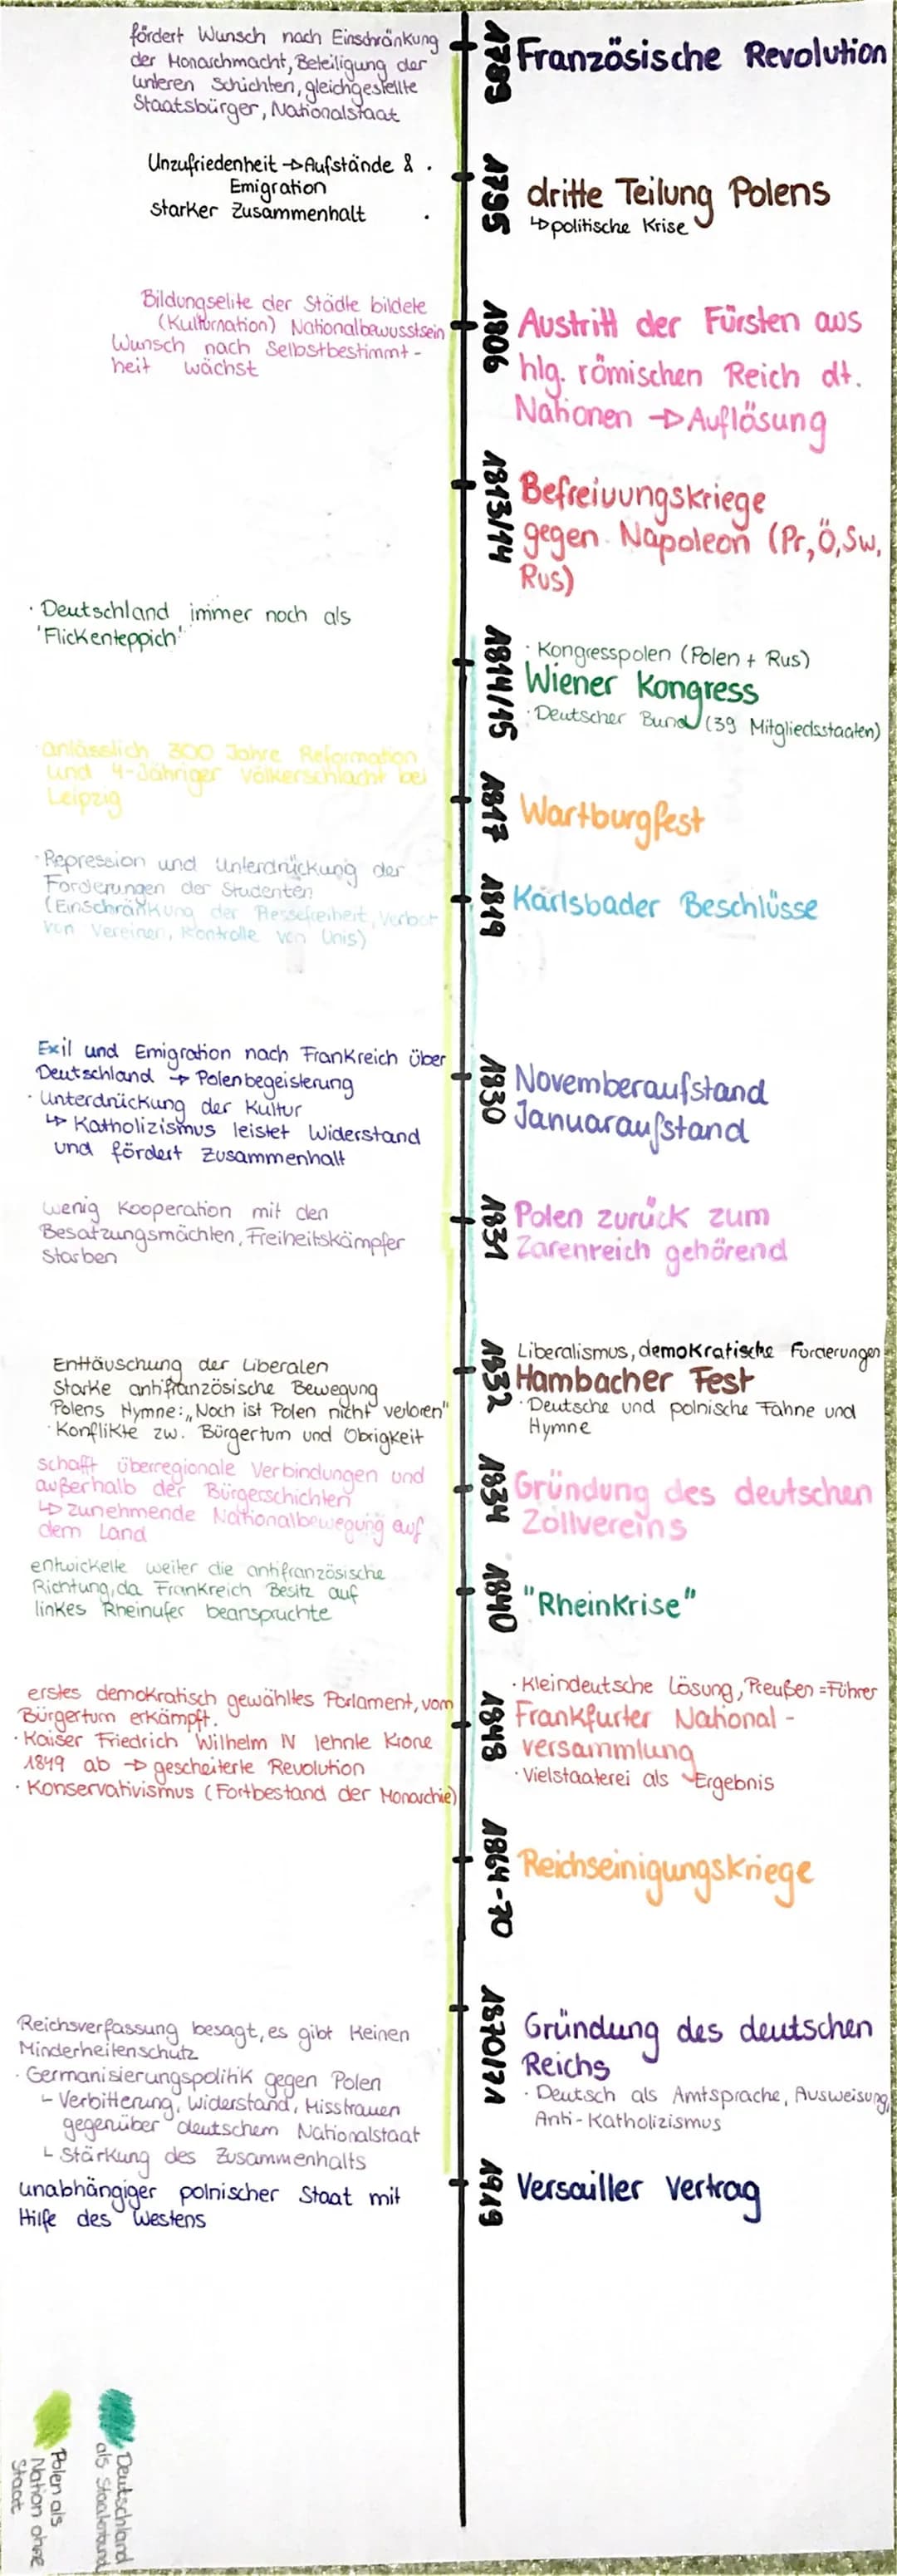 fördert Wunsch nach Einschränkung
der Monarchmacht, Beteiligung der
unteren Schichten, gleichgestellte
Staatsbürger, Nationalstaat
1789
Französische Revolution
Unzufriedenheit → Aufstände &
Emigration
starker Zusammenhalt
1795
dritte Teilung Polens
↳ politische Krise
Bildungselite der Städte bildete
(Kulturnation) Nationalbewusstsein
Wunsch nach Selbstbestimmt-
heit wächst
1806
Austritt der Fürsten aus
hlg. römischen Reich dt.
Nationen → Auflösung
1813/14
Befreiuungskriege
gegen Napoleon (Pr, Ö, Sw,
Rus)
· Deutschland immer noch als
'Flickenteppich'
1814/15
· Kongresspolen (Polen + Rus)
Wiener Kongress
· Deutscher Bund (39 Mitgliedsstaaten)
· anlässlich 300 Jahre Reformation
und 4-Jähriger Völkerschlacht bei
Leipzig
1817
Wartburgfest
· Repression und Unterdrückung der
Forderungen der Studenten
(Einschränkung der Pressefreiheit, Verbot
von Vereinen, Kontrolle von Unis)
1819
Karlsbader Beschlüsse
Exil und Emigration nach Frankreich über
Deutschland → Polenbegeisterung
· Unterdrückung der Kultur
↳ Katholizismus leistet Widerstand
und fördert Zusammenhalt
1830
Novemberaufstand
Januaraufstand
wenig Kooperation mit den
Besatzungsmächten, Freiheitskämpfer
starben
1831
Polen zurück zum
Zarenreich gehörend
Enttäuschung der Liberalen
Starke antifranzösische Bewegung
Polens Hymne: „Noch ist Polen nicht verloren"
· Konflikte zw. Bürgertum und Obrigkeit
1832
Liberalismus, demokratische Forderungen
Hambacher Fest
· Deutsche und polnische Fahne und
Hymne
schafft überregionale Verbindungen und
außerhalb der Bürgerschichten
↳ zunehmende Nationalbewegung auf
dem Land
1834
Gründung des deutschen
Zollvereins
entwickelte weiter die antifranzösische
Richtung, da Frankreich Besitz auf
linkes Rheinufer beanspruchte
1840
"Rheinkrise"
erstes demokratisch gewähltes Parlament, vom
Bürgertum erkämpft.
· Kaiser Friedrich Wilhelm IV lehnte Krone
1849 ab → gescheiterte Revolution
· Konservativismus (Fortbestand der Monarchie)
1848
· Kleindeutsche Lösung, Preußen = Führer
Frankfurter National-
versammlung
· Vielstaaterei als Ergebnis
1864-70
Reichseinigungskriege
Reichsverfassung besagt, es gibt keinen
Minderheitenschutz
· Germanisierungspolitik gegen Polen
└ Verbitterung, Widerstand, Misstrauen
gegenüber deutschem Nationalstaat
└ Stärkung des Zusammenhalts
1870/71
Gründung des deutschen
Reichs
· Deutsch als Amtsprache, Ausweisung,
Anti-Katholizismus
unabhängiger polnischer Staat mit
Hilfe des Westens
1919
Versailler Vertrag
Deutschland
als Staatenbund
Polen als
Nation ohne
Staat